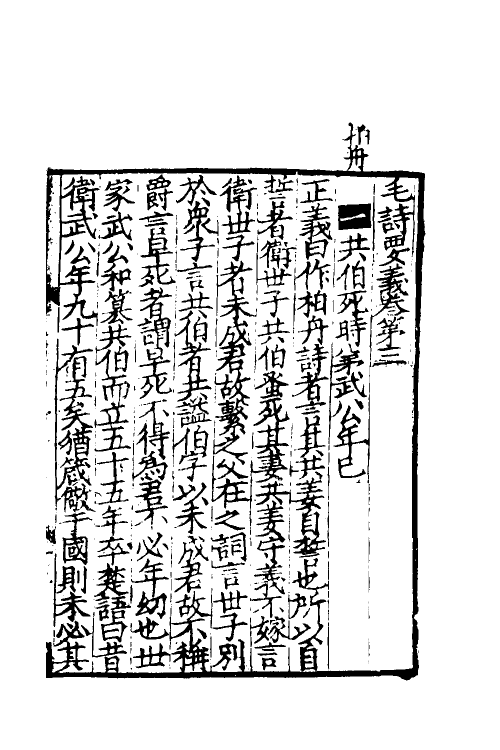 柏舟
毛詩要義卷第三
一 共伯死時弟武公年已
正義曰作柏舟詩者言其共姜自誓也所以自
誓者衛世子共伯蚤死其妻共姜守義不嫁言
衛世子者未成君故繫之父在之詞言世子別
於衆子言共伯者共謚伯字以未成君故不稱
爵言早死者謂早死不得爲君不必年幼也世
家武公和篡共伯而立五十五年卒楚語曰昔
衛武公年九十有五矣猶箴儆于國則未必其